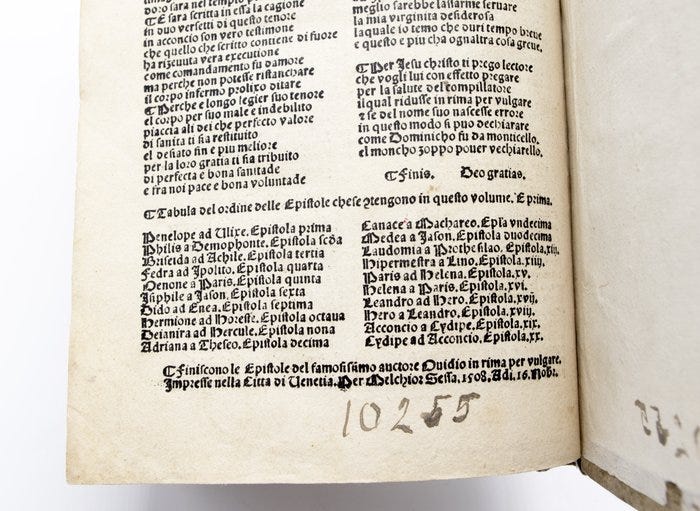 doro sara nel tempo
¶E sara scritta in essa la cagione
in duo versetti di questo tenore
in acconcio son vero testimone
che quello chr scritto contiene di fuore
ha riceuuta vera executione
come comandamento fu damore
ma perche non potesse ristanchare
il corpo infermo prolixo ditare
¶Perche e longo legier suo tenore
el corpo per suo male e indebilito
piaccia ali dei che perfecto valore
di sanita ti sia restituito
el desiato fin e piu meliore
per la loro gratia ti sia tribuito
di perfecta e bona sanitade
e fra noi pace e bona voluntade
meglio sarebbe lassarme seruare
la mia virginita desiderosa
laquale io temo che duri tempo breue
e questo e piu cha ognaltra cosa greue.
¶Per Jesu christo ti prego lectore
che vogli lui con effetto pregare
per la salute del compillatore
ilqual ridusse in rima per vulgare
⁊ se del nome suo nascesse errore
in questo modo si puo dechiarare
come Dominicho fu da monticello.
el moncho zoppo pouer vechiarello.
¶Finis. Deo gratias.
¶Tabula del ordine delle Epistole chese ꝯtengono in questo volume. E prima.
Penelope ad Ulixe. Epistola prima
Philis a Demophonte. Epistola scďa
Briseida ad Achile. Epistola tertia
Fedra ad Ipolito. Epistola quarta
Oenone a Paris. Epistola quinta
Isiphile a Jason. Epistola sexta
Dido ad Enea. Epistola septima
Hermione ad Horeste. Epistola octaua
Deianira ad Hercule. Epistola nona
Adriana a Theseo. Epistola decima
Canace a Machareo. Epľa vndecima
Medea a Jason. Epistola duodecima
Laudomia a Prothesilao. Epistola.xiij.
Hipermestra a Lino. Epistola.xiiij.
Paris ad Helena. Epistola.xv.
Helena a Paris. Epistola.xvi.
Leandro ad Hero. Epistola.xvij.
Hero a Leandro. Epistola.xviij.
Acconcio a Cydipe. Epistola.xix.
Cydipe ad Acconcio. Epistola.xx.
¶Finiscono le Epistole del famosissimo auctore Ouidio in rima per vulgare.
Impresse nella Citta di Uenetia. Per Melchior Sessa. 1508. Adi. 16. Nobr.
10255